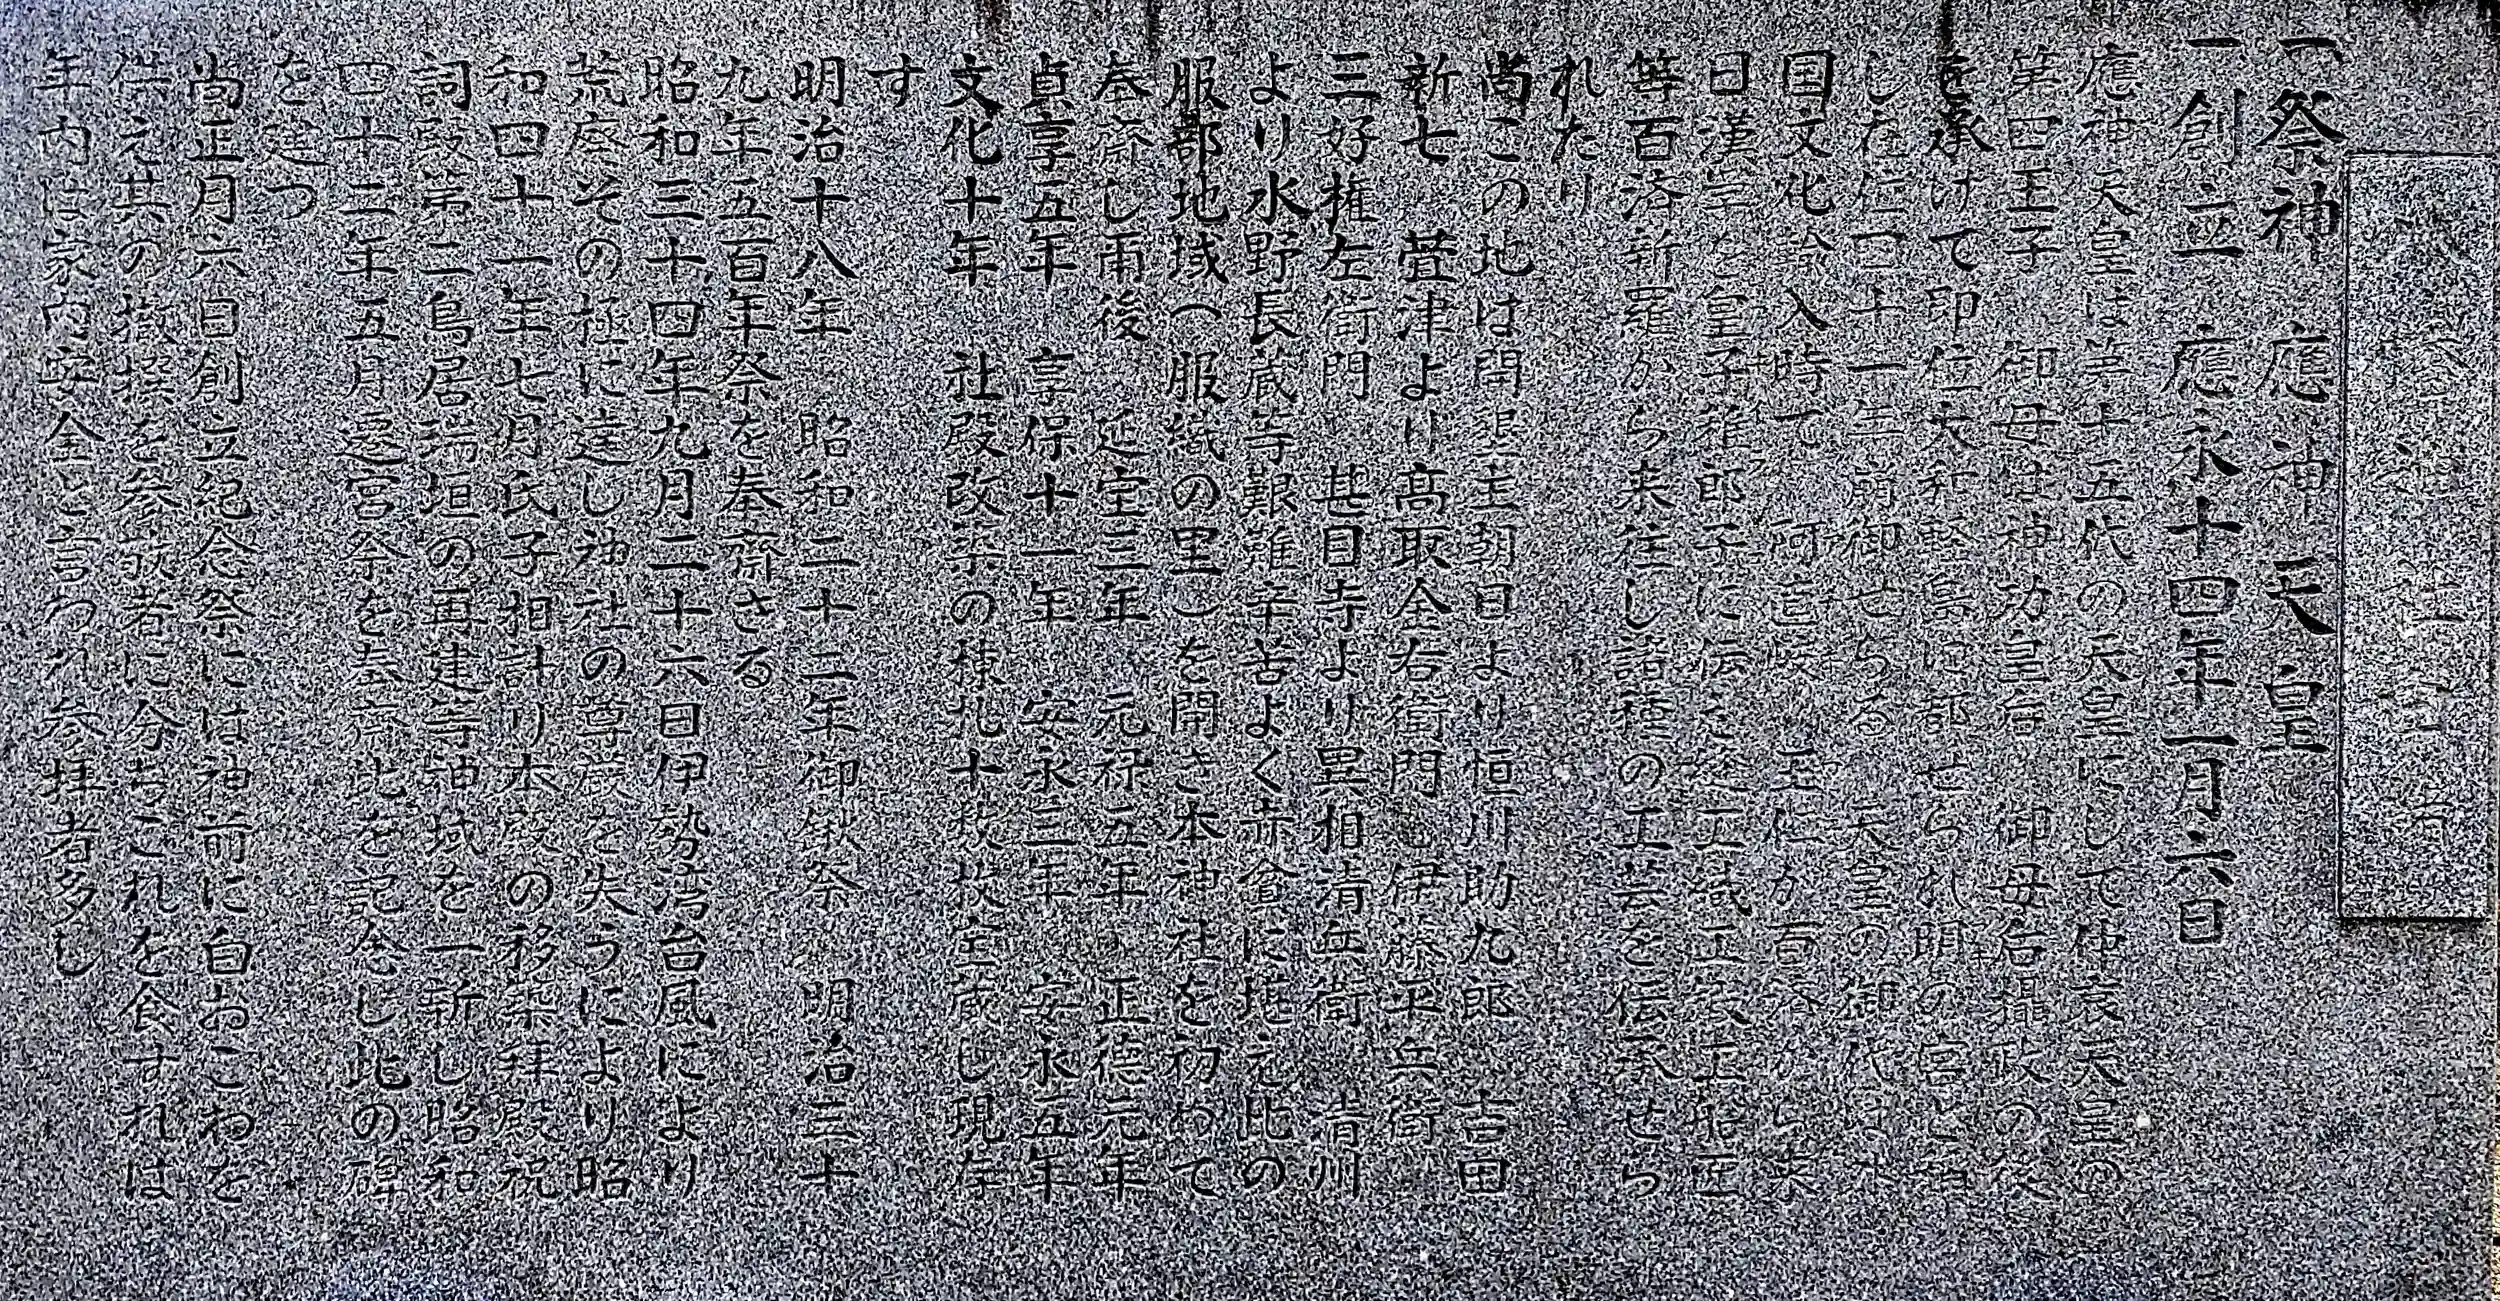 一祭神 應神天皇
一創立 應永十四年一月六日
應神天皇は第十五代の天皇にして仲哀天皇の
第四王子 御母は神功皇后 御母后攝政の後
を承けて即位大和軽島に都せられ明の宮と
し在位四十一年崩御せらる 天皇の御代は
国文化輸入時で 阿直岐 王仁が百済から来
日漢学を皇子稚郎子に伝え
等百済新羅から来往し諸種の工芸を伝承せら
れたり
尚この地は開墾主朝日より恒川助九郎 吉田
新七 萱津より高取金右衛門 伊藤平兵衛
三好権左衛門 甚目寺より異相清兵衛 清州
より水野長蔵等艱難辛苦よく赤貧に堪え此の
服部地域(服織の里)を開き本神社を初めて
奉斎し雨後 延宝三年 元禄五年 正徳元年
貞享五年 享保十一年 安永三年 安永五年
文化十年 社殿改築の棟札十数枚宝蔵し現存
す
明治十八年 昭和二十二年御鍬祭 明治三十
九年五百年祭を奉斎さる
昭和三十四年九月二十六日伊勢湾台風により
荒廃その極に達し神社の尊厳を失うにより昭
和四十一年七月氏子相計り本殿の移築拝殿祝
詞殿第二鳥居瑞垣の再建等神域を一新し昭和
四十二年五月遷宮祭を奉斎此を記念し此の碑
を建つ
尚正月六日創立紀念祭には神前に白おこわを
供え其の撤撰を参拝者に分ちこれを食すれは
年内は家内安全と言われ参拝者多し